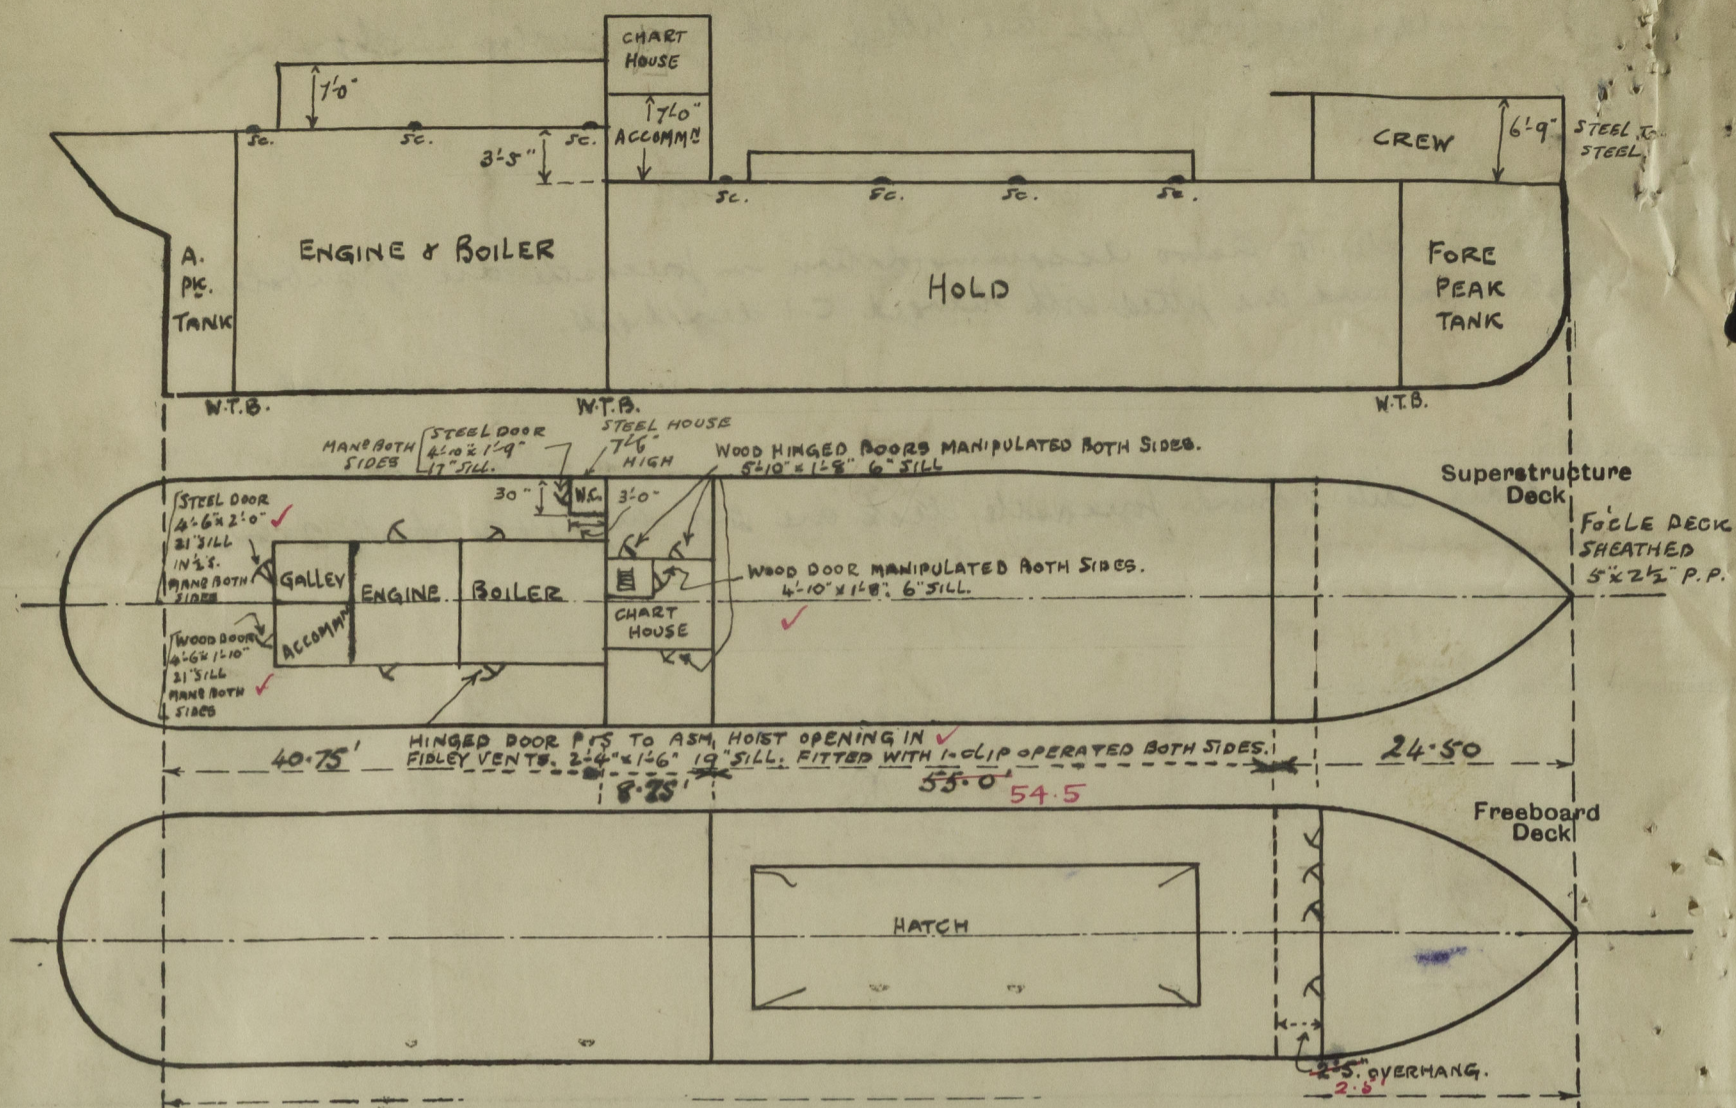 CHART
HOUSE
7'-0"
7'-0"
ACCOMMN
SC.
SC.
SC.
3'-5"
6'-9"
CREW
STEEL TO
STEEL.
SC.
SC.
SC.
SC.
A.
PK.
TANK
ENGINE & BOILER
HOLD
FORE
PEAK
TANK
W.T.B.
W.T.B.
W.T.B.
MAND BOTH
SIDES
STEEL DOOR
4'-10" x 1'-9"
17" SILL.
STEEL HOUSE
7'-6"
HIGH
WOOD HINGED DOORS MANIPULATED BOTH SIDES.
5'-10" x 1'-8" 6" SILL
Superstructure
Deck
STEEL DOOR
4'-6" x 2'-0"
21" SILL
IN 2 S.
MAND BOTH
SIDES
30"
W.C.
3'-0"
FO'CLE DECK
SHEATHED
5" x 2½" P.P.
GALLEY
ENGINE
BOILER
WOOD DOOR MANIPULATED BOTH SIDES.
4'-10" x 1'-8" 6" SILL.
CHART
HOUSE
ACCOMMN
WOOD DOOR
4'-6" x 1'-10"
21" SILL
MAND BOTH
SIDES
HINGED DOOR P & S TO ASH HOIST OPENING IN
FIDLEY VENTS. 2'-4" x 1'-6" 19" SILL. FITTED WITH 1-CLIP OPERATED BOTH SIDES.
40.75'
8.75'
55.0'
54.5
24.50
Freeboard
Deck
HATCH
2'-5" OVERHANG.
2.5'